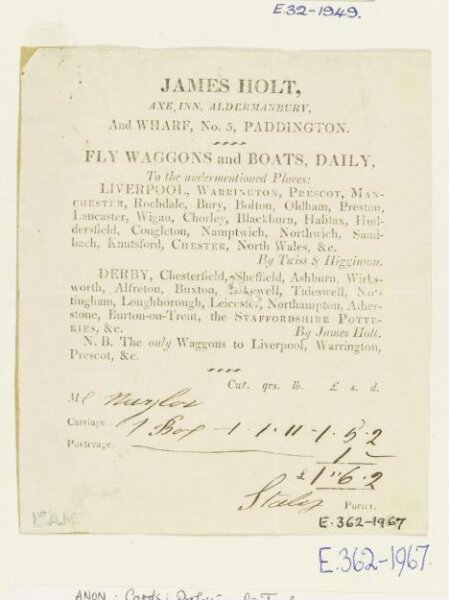 E.32-1949.
JAMES HOLT,
AXE INN, ALDERMANBURY,
And WHARF, No. 5, PADDINGTON.
FLY WAGGONS and BOATS, DAILY,
To the undermentioned Places:
LIVERPOOL, WARRINGTON, PRESCOT, MAN-
CHESTER, Rochdale, Bury, Bolton, Oldham, Preston,
Lancaster, Wigan, Chorley, Blackburn, Halifax, Hud-
dersfield, Congleton, Namptwich, Northwich, Sand-
bach, Knutsford, CHESTER, North Wales, &c.
By Twiss & Higginson.
DERBY, Chesterfield, Sheffield, Ashburn, Wirks-
worth, Alfreton, Buxton, Bakewell, Tideswell, Not-
tingham, Loughborough, Leicester, Northampton, Ather-
stone, Burton-on-Trent, the STAFFORDSHIRE POTTE-
RIES, &c. By James Holt.
N. B. The only Waggons to Liverpool, Warrington,
Prescot, &c.
Cwt. qrs. lb. £ s. d.
Mr Naylor
Carriage 1 Box - 1 - 1 - 11 - 1 . 5 . 2
Porterage 1 -
£ 1 " 6 . 2
Porter.
E.362-1967
E.362-1967.
ANON: Cards: